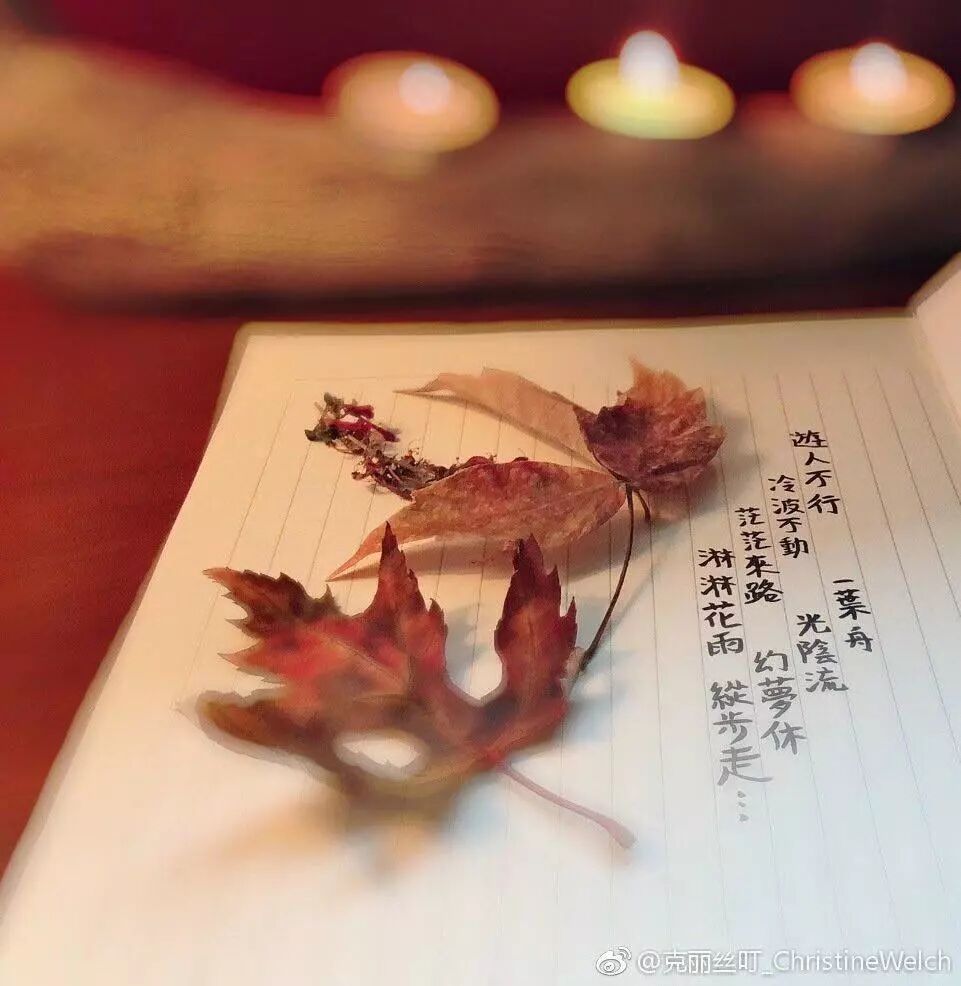 遊人不行 一葉舟
冷波不動 光陰流
茫茫來路 幻夢休
淋淋花雨 縱步走…
@克丽丝叮_ChristineWelch